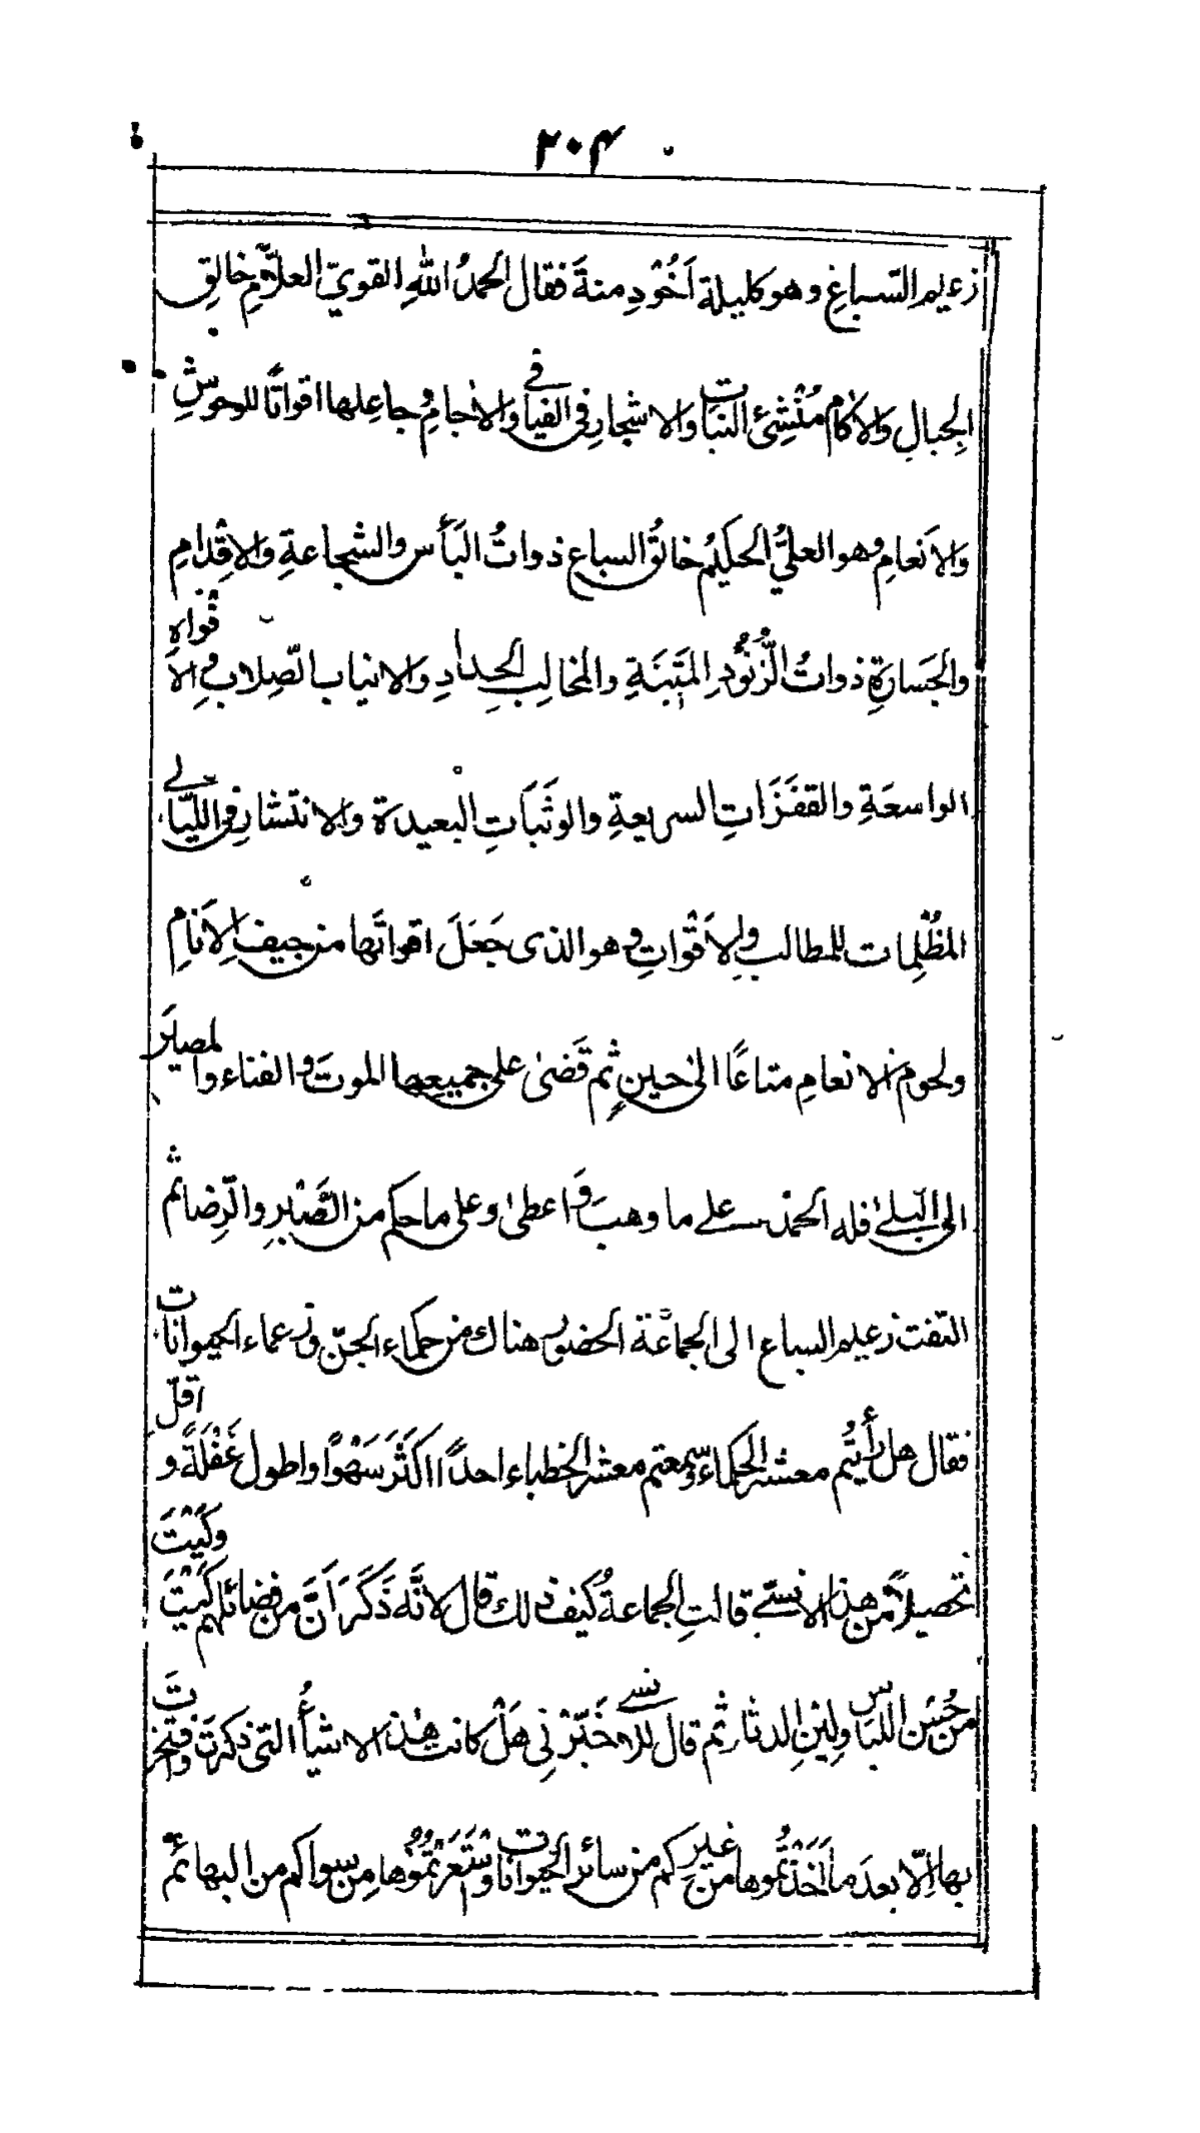 ۲۰۴
زعيم السّباعِ وهو كليلة اَخُوْدِمنةَ فقال الحمدُ اللهِ القويّ العلّامِ خالقِ
الجِبالِ والاٰكامِ مُنْشِئِ النبَات والاشجارِ فى الفيافى والاٰجامِ وجاعِلها اقواتًا للوحوشِ
والاَنعامِ وهو العلىُّ الحكيمُ خالقُ السباع ذواتُ البَأسِ والشجاعةِ والاِقْدامِ
والجَسارةِ ذواتُ الزُّنُوْدِ المَتِيْنَةِ والمخالبِ الحِدادِ والانياب الصِّلابِ والاَفواهِ
الواسعَةِ والقفَزَاتِ السريعةِ والوثَبَاتِ البعيدة والانتشارِ فى الليَالى
المظْلِمات للمطالب ولِلاَقْواتِ وهو الذى جَعَلَ اقواتَها من جيف الاَنامِ
ولحوم الانعامِ متاعًا الىٰ حينٍ ثم قَضىٰ على جميعِها الموتَ والفناء والمصيرَ
الى البلىٰ فله الحمد على ما وهبَ وَاعطىٰ وعلى ماحكم من الصَّبْرِ والرِّضا ثم
التفت زعيم السباع الى الجماعة الحضور هناك من حكماء الجنّ وزعماء الحيوانات
فقال هل رأيتُم معشر الحكماء وسمعتم معشر الخطباء احدًا اكثَرَ سَهْوًا واطول غَفْلَةً و اقلّ
تحصيلاً من هذا الانسىّ قالتِ الجماعةُ كيف ذلك قال لانَّه ذَكَرَ اَنَّ من فضائلهم كَيْتَ وكَيْتَ
من حُسْنِ اللباس ولِيْنِ الدثار ثم قال للانسى خَبِّرْنِى هَلْ كانت هٰذه الاشيأُ التى ذكرتَ وافتخرتَ
بها اِلّا بعدَ ما اَخَذْتُموها من غيرِكم من سائر الحَيوانات واسْتَعَرْتُمُوْها مِن سِواكم من البهائم